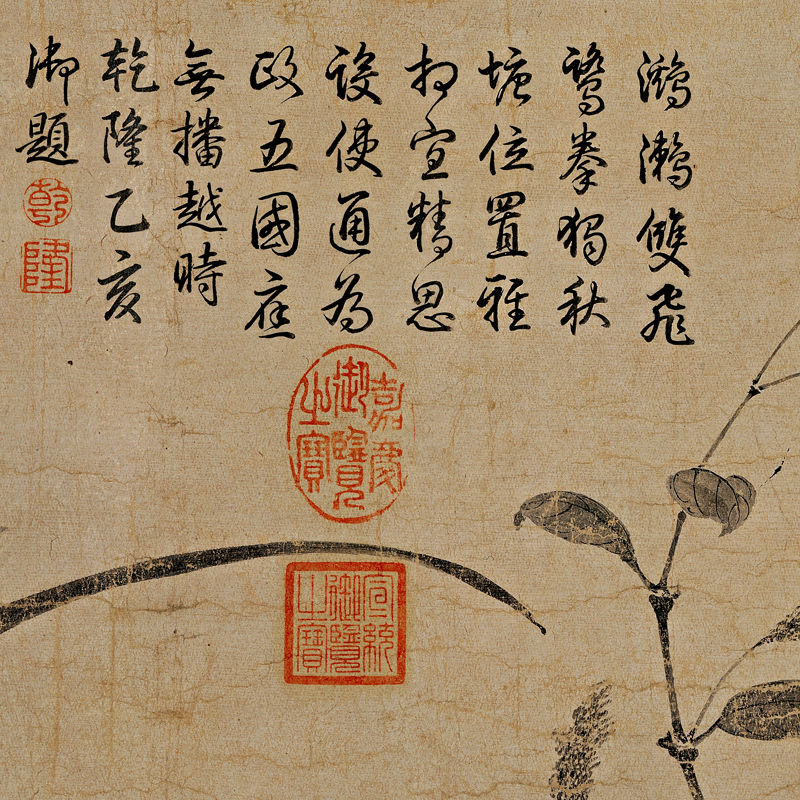 鸂鶒雙飛
鷺拳獨秋
塘位置雅
相宜精思
設使通為
政五國庭
無播越時
乾隆乙亥
御題
乾
隆
嘉慶
御覽
之寶
宣統
御覽
之寶